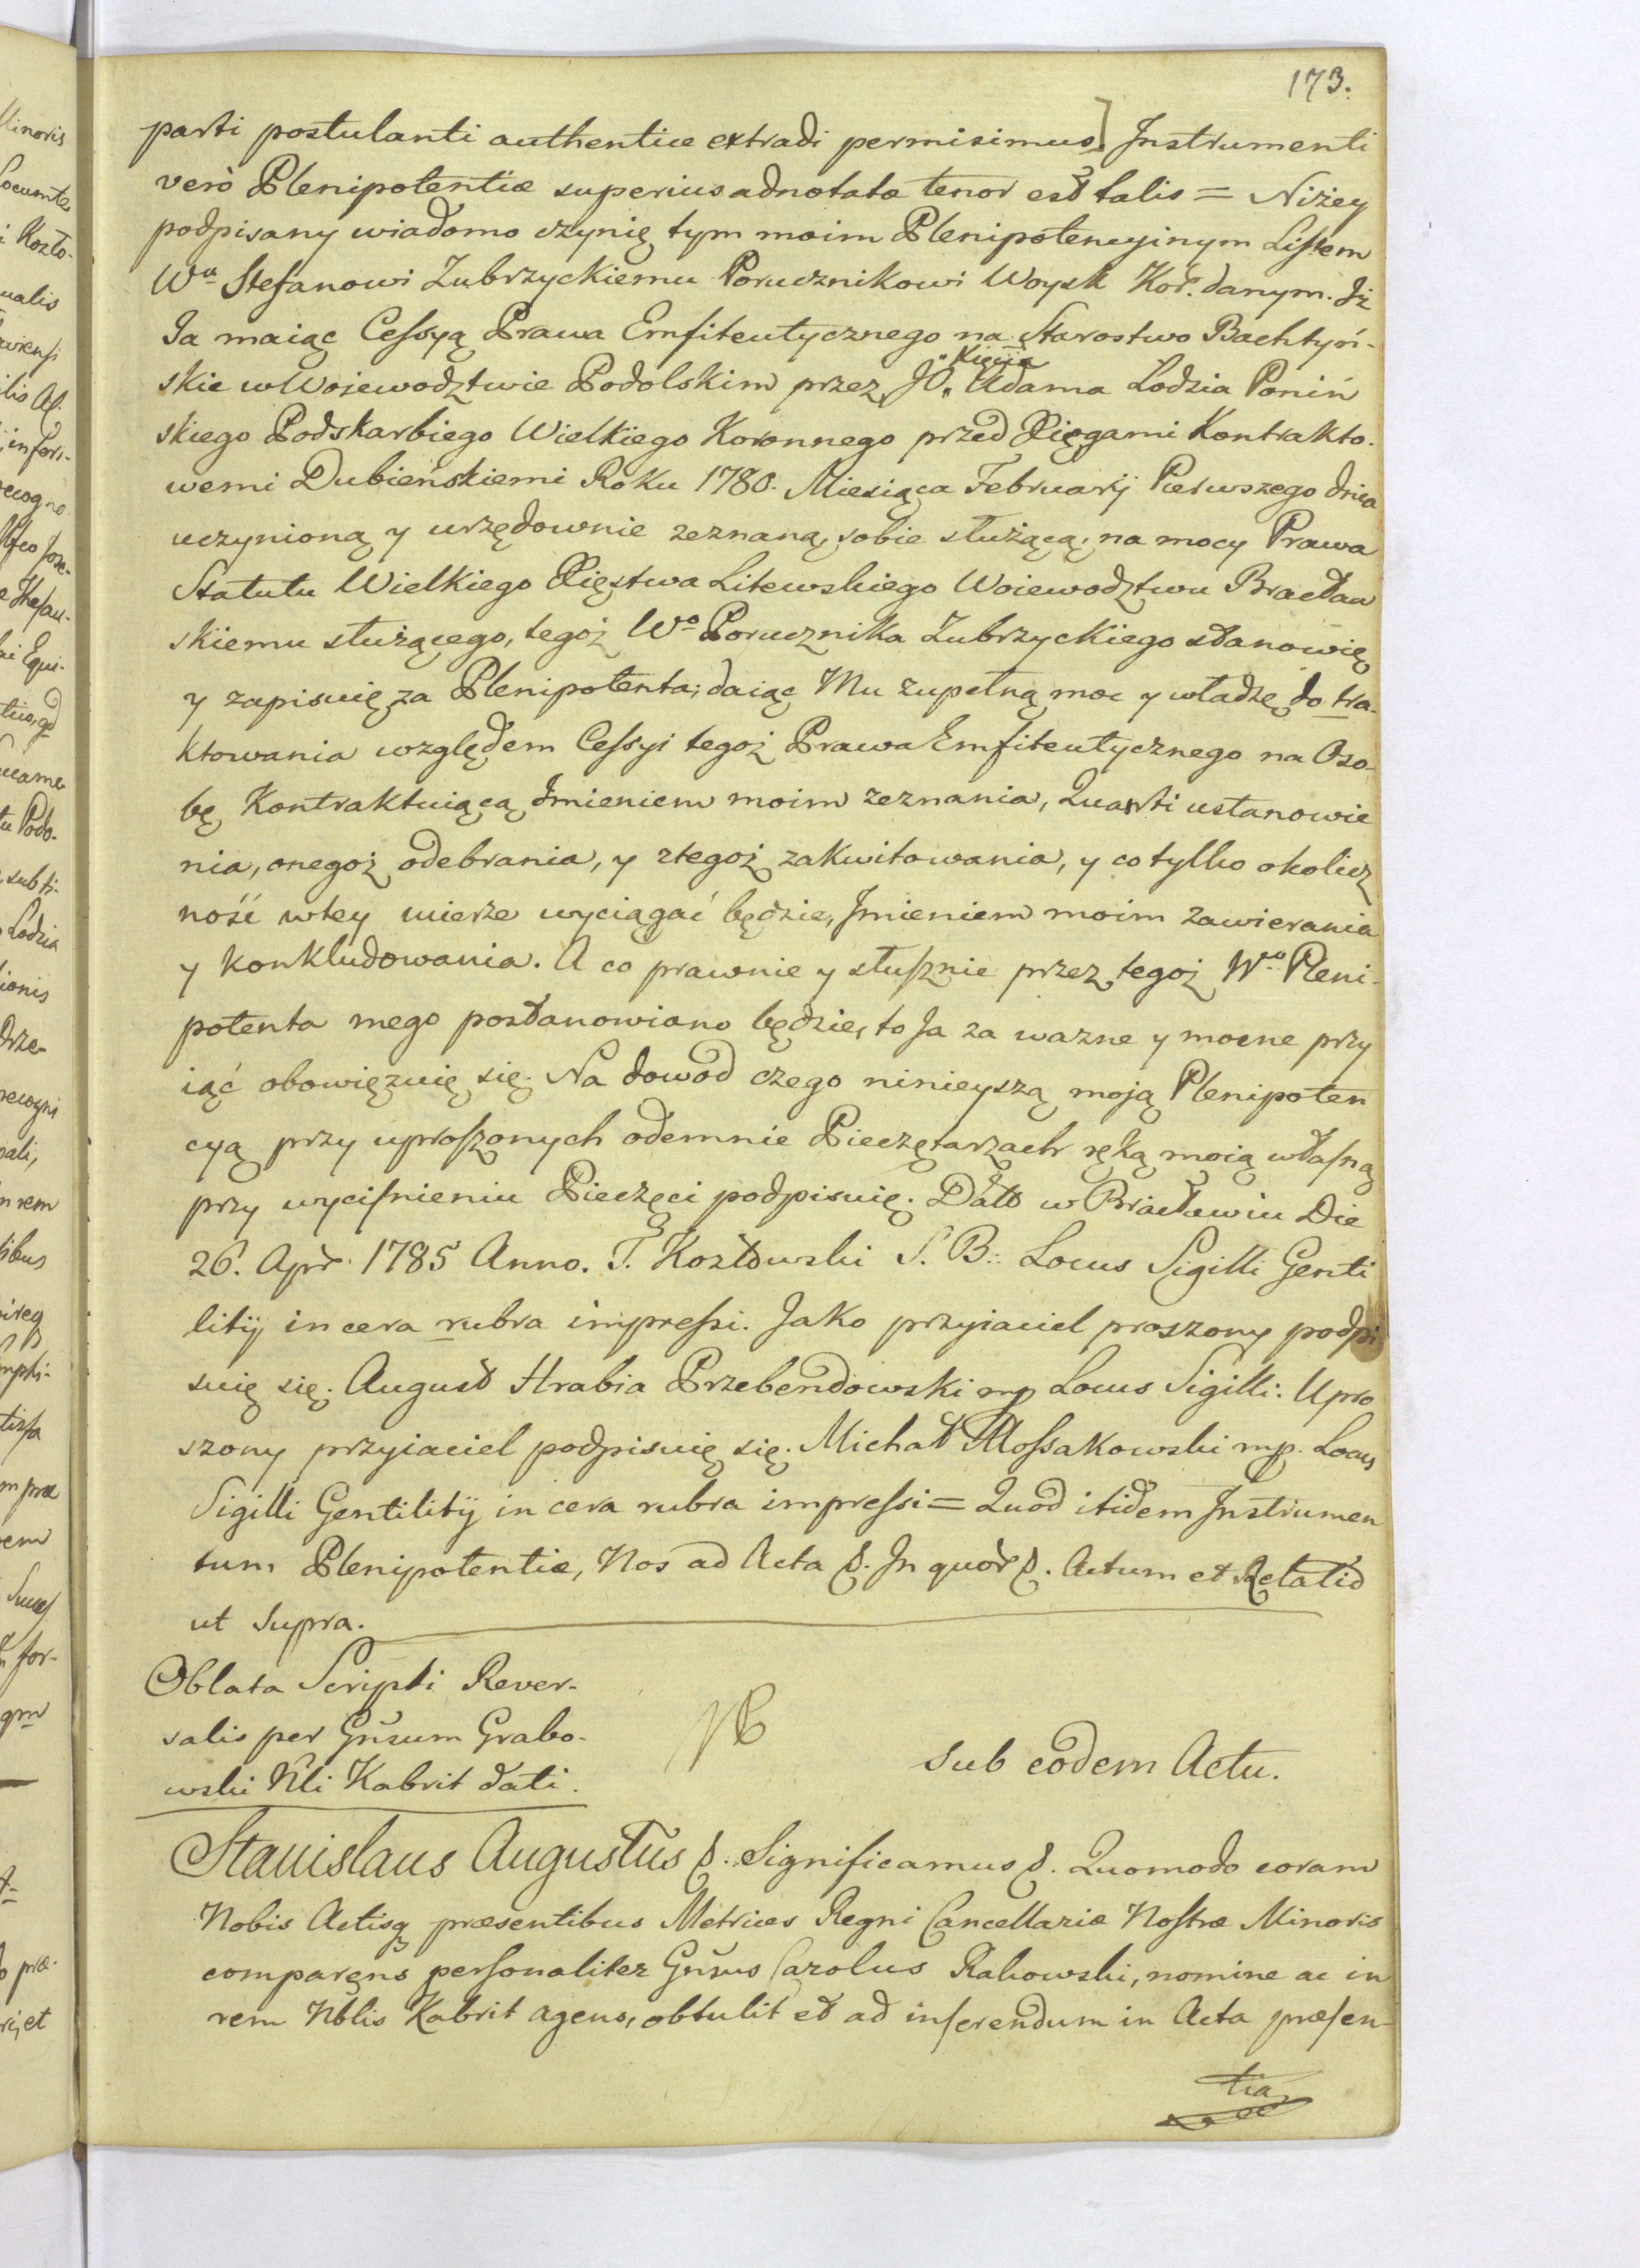 173.
parti postulanti authentice extradi permisimus] Instrumenti
verò Plenipotentiæ superius adnotatæ tenor est talis = Niżey
podpisany wiadomo czynię tym moim Plenipotencyinym Listem
Wu Stefanowi Zubrzyckiemu Porucznikowi Woysk Kor. danym. Iż
Ja maiąc Cessyą Prawa Emfiteutycznego na Starostwo Bachtyń-
skie w Wojewodztwie Podolskim przez JO. Xięcia Adama Łodzia Poniń
skiego Podskarbiego Wielkiego Koronnego przed Xięgami Kontrakto-
wemi Dubieńskiemi Roku 1780. Miesiąca Februarij Pierwszego dnia
uczynioną y urzędownie zeznaną, sobie służącą; na mocy Prawa
Statutu Wielkiego Xięstwa Litewskiego Woiewodztwu Bracław
skiemu służącego, tegoż Wo Porucznika Zubrzyckiego stanowię
y zapisuię za Plenipotenta; daiąc Mu zupełną moc y władzę do tra-
ktowania względem Cessyi tegoż Prawa Emfiteutycznego na Oso-
bę Kontraktuiącą Imieniem moim zeznania, Quarti ustanowie
nia, onegoż odebrania, y z tegoż zakwitowania, y co tylko okolicz
ność w tey mierze wyciągać będzie, Imieniem moim zawierania
y konkludowania. A co prawnie y słusznie przez tegoż Wo Pleni-
potenta mego postanowiano będzie, to Ja za ważne y mocne przy
iąć obowięzuię się. Na dowod czego ninieyszą moją Plenipoten
cyą przy uproszonych odemnie Pieczętarzach ręką moią własną
przy wyciśnieniu Pieczęci podpisuię. Datt w Bracławiu Die
26. Apr. 1785 Anno. T. Kozłowski S. B.: Locus Sigilli Genti
litij in cera rubra impressi. Jako przyiaciel proszony podpi
suię się. August Hrabia Przebendowski mp Locus Sigilli. Upro
szony przyiaciel podpisuię się. Michał Mossakowski mp. Locus
Sigilli Gentilitij in cera rubra impressi = Quod itidem Instrumen
tum Plenipotentiæ, Nos ad Acta &. In quor &. Actum et Relatio
ut supra.
Oblata Scripti Rever-
salis per Gnsum Grabo-
wski Nli Kabrit dati.
sub eodem Actu.
Stanislaus Augustus &. Significamus &. Quomodo coram
Nobis Actisq præsentibus Metrices Regni Cancellariæ Nostræ Minoris
comparens personaliter Gnsus Carolus Rakowski, nomine ac in
rem Nblis Kabrit agens, obtulit et ad inserendum in Acta præsen-
tia